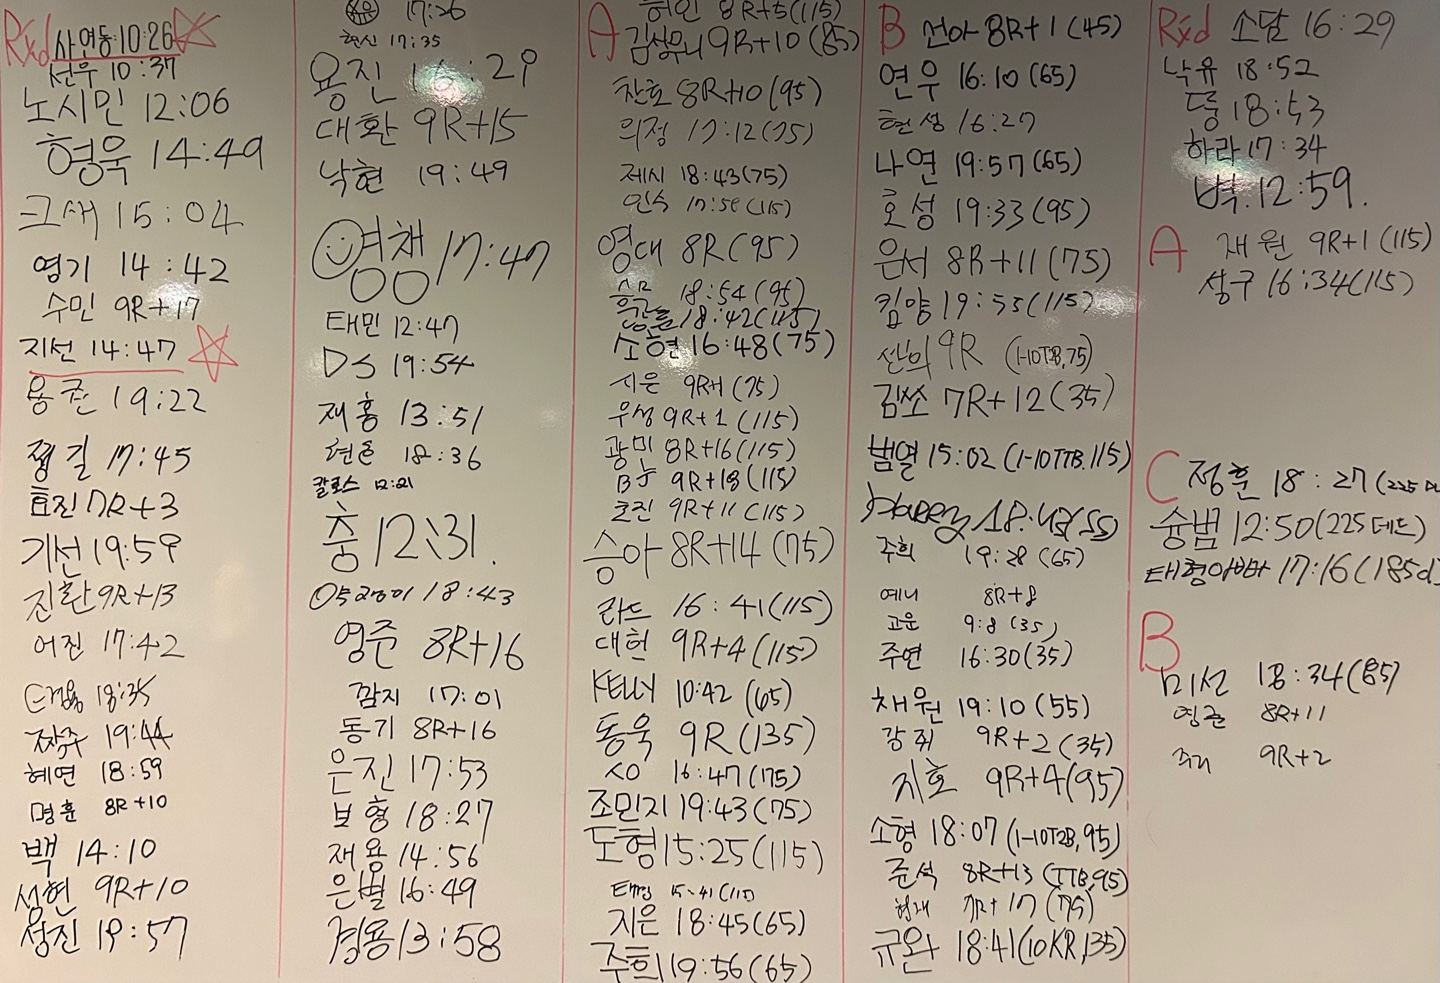 Rxd 사연동 10:26
선우 10:37
노시민 12:06
형욱 14:49
크새 15:04
영기 14:42
수민 9R+17
지선 14:47
용군 19:22
쩡길 17:45
효진 7R+3
기선 19:59
진환 9R+13
어진 17:42
18:35
짝주 19:44
혜연 18:59
명훈 8R+10
백 14:10
성현 9R+10
성진 19:57
17:26
현신 17:35
용진 16:29
대환 9R+15
낙현 19:49
영챔 17:47
태민 12:47
DS 19:54
재홍 13:51
현준 18:36
칼로스 12:21
충 12:31.
18:43
영준 8R+16
깜지 17:01
동기 8R+16
은진 17:53
보형 18:27
재용 14:56
은별 16:49
경용 13:58
허인 8R+5(115)
A 김성우니 9R+10 (85)
찬호 8R+10(95)
의정 17:12(75)
제시 18:43(75)
민숙 17:58(115)
영대 8R(95)
18:54(95)
18:42(115)
소현 16:48(75)
시은 9R+1 (75)
우성 9R+1 (115)
광미 8R+16(115)
9R+18(115)
호진 9R+11(115)
승아 8R+14(75)
라드 16:41(115)
대헌 9R+4(115)
KELLY 10:42 (65)
동욱 9R(135)
SO 16:47(75)
조민지 19:43(75)
도형 15:25(115)
15:41(115)
지은 18:45(65)
주희 19:56(65)
B 선아 8R+1(45)
연우 16:10(65)
현성 16:27
나연 19:57(65)
호성 19:33(95)
은서 8R+11(75)
킴양 19:55(115)
선의 9R (1-10TTB,75)
김쏘 7R+12(35)
범열 15:02(1-10TTB,115)
Harry 18:42(55)
주희 19:28(65)
예니 8R+8
고운 9:8(35)
주연 16:30(35)
채원 19:10(55)
강쥐 9R+2(35)
지호 9R+4(95)
소형 18:07(1-10T2B,95)
준석 8R+13(TTB,95)
형재 7R+17(75)
규완 18:41(10KR,135)
Rxd 소담 16:29
낙유 18:52
둥 18:53
하라 17:34
벽. 12:59.
A 재원 9R+1(115)
상구 16:34(115)
C 정훈 18:27(225
숭범 12:50(225데드)
태형아빠 17:16(185d)
B
미선 18:34(85)
영준 8R+11
주리 9R+2